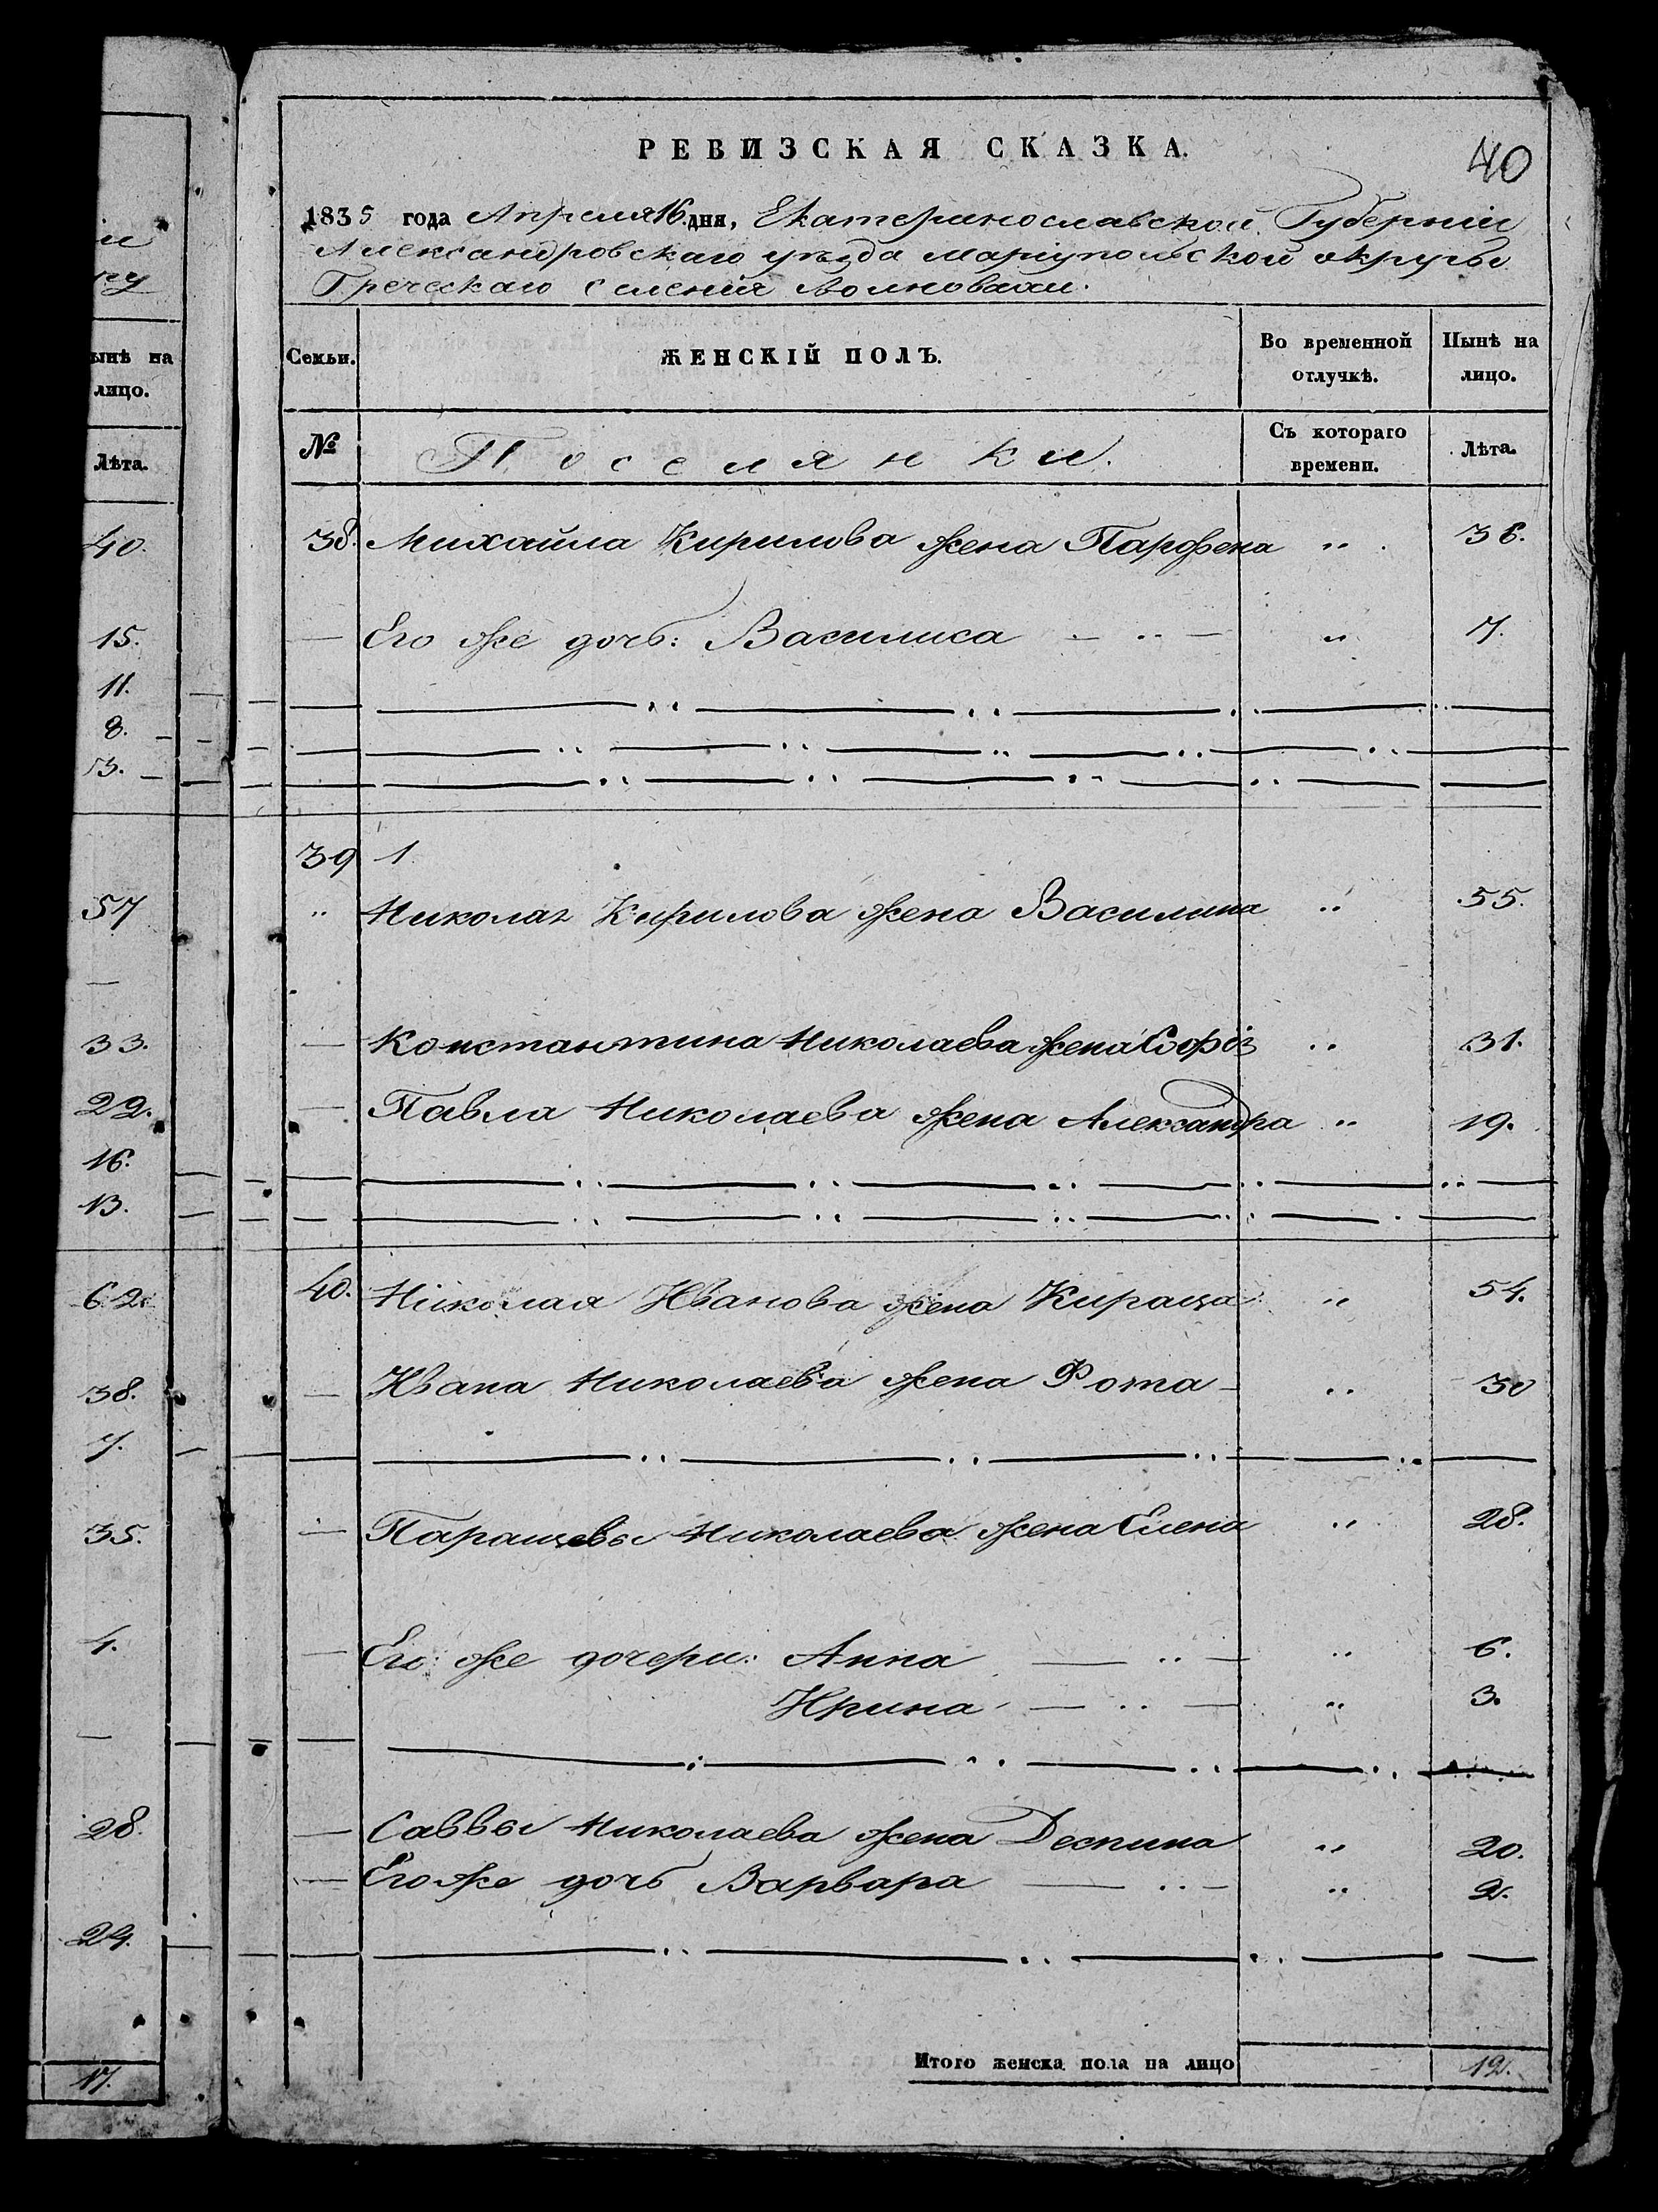 РЕВИЗСКАЯ СКАЗКА.
40
1835 года Апреля 16 дня, Екатеринославской Губерніи
Александровскаго уѣзда маріупольской округи
Греческаго селенія Волновахи.
ынѣ на
лицо.
Семьи.
ЖЕНСКІЙ ПОЛЪ.
Во временной
отлучкѣ.
Нынѣ на
лицо.
Лѣта.
№
Поселянки.
Съ котораго
времени.
Лѣта.
40.
38. Михайла Кирилова жена Парфена " 36.
15.
Его же дочь: Василиса " 7.
11.
8.
3.
39 1.
57
" Николая Кирилова жена Василина " 55.
33.
Константина Николаева жена Софія " 31.
22.
Павла Николаева жена Александра " 19.
16.
13.
62.
40. Николая Иванова жена Кираца " 54.
38.
Ивана Николаева жена Фота " 30
7.
35.
Паращевы Николаева жена Елена " 28.
4.
Его же дочери: Анна " 6.
Ирина " 3.
28.
Саввы Николаева жена Деспина " 20.
Его же дочь Варвара " 2.
24.
Итого женска пола на лицо 12.
17.